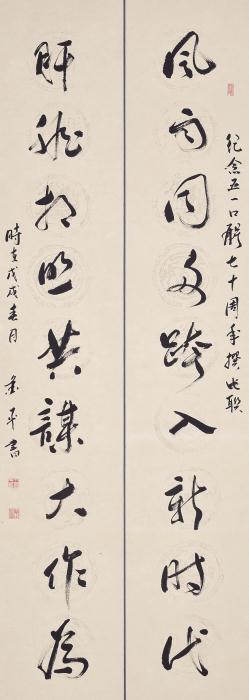 纪念五一口號七十周年撰此联
风雨同舟跨入新时代
肝胆相照共謀大作为
時在戊戌春月